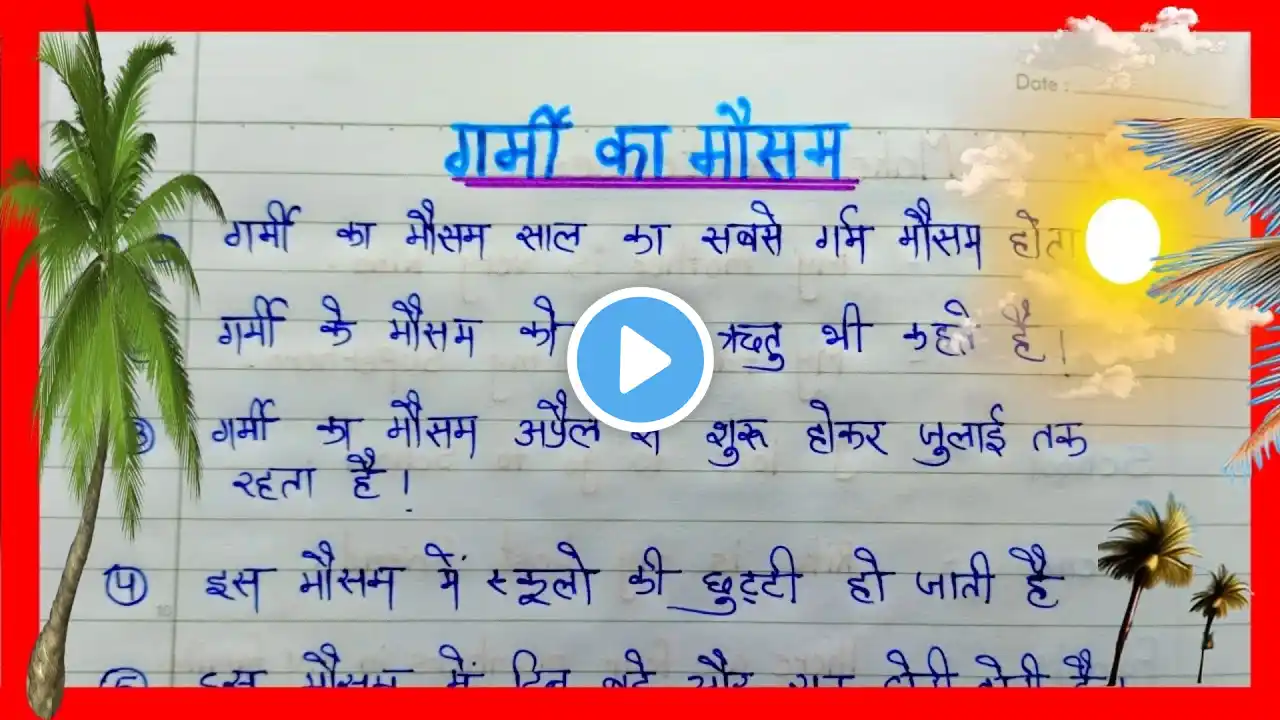 Date :
गर्मी का मौसम
गर्मी का मौसम साल का सबसे गर्म मौसम होता
गर्मी के मौसम को ऋतु भी कहते है।
③ गर्मी का मौसम अप्रैल शुरू होकर जुलाई तक
रहता है।
④ इस मौसम में स्कूलो की छुट्टी हो जाती है
इस मौसम में दिन बड़े और रात छोटी होती है।